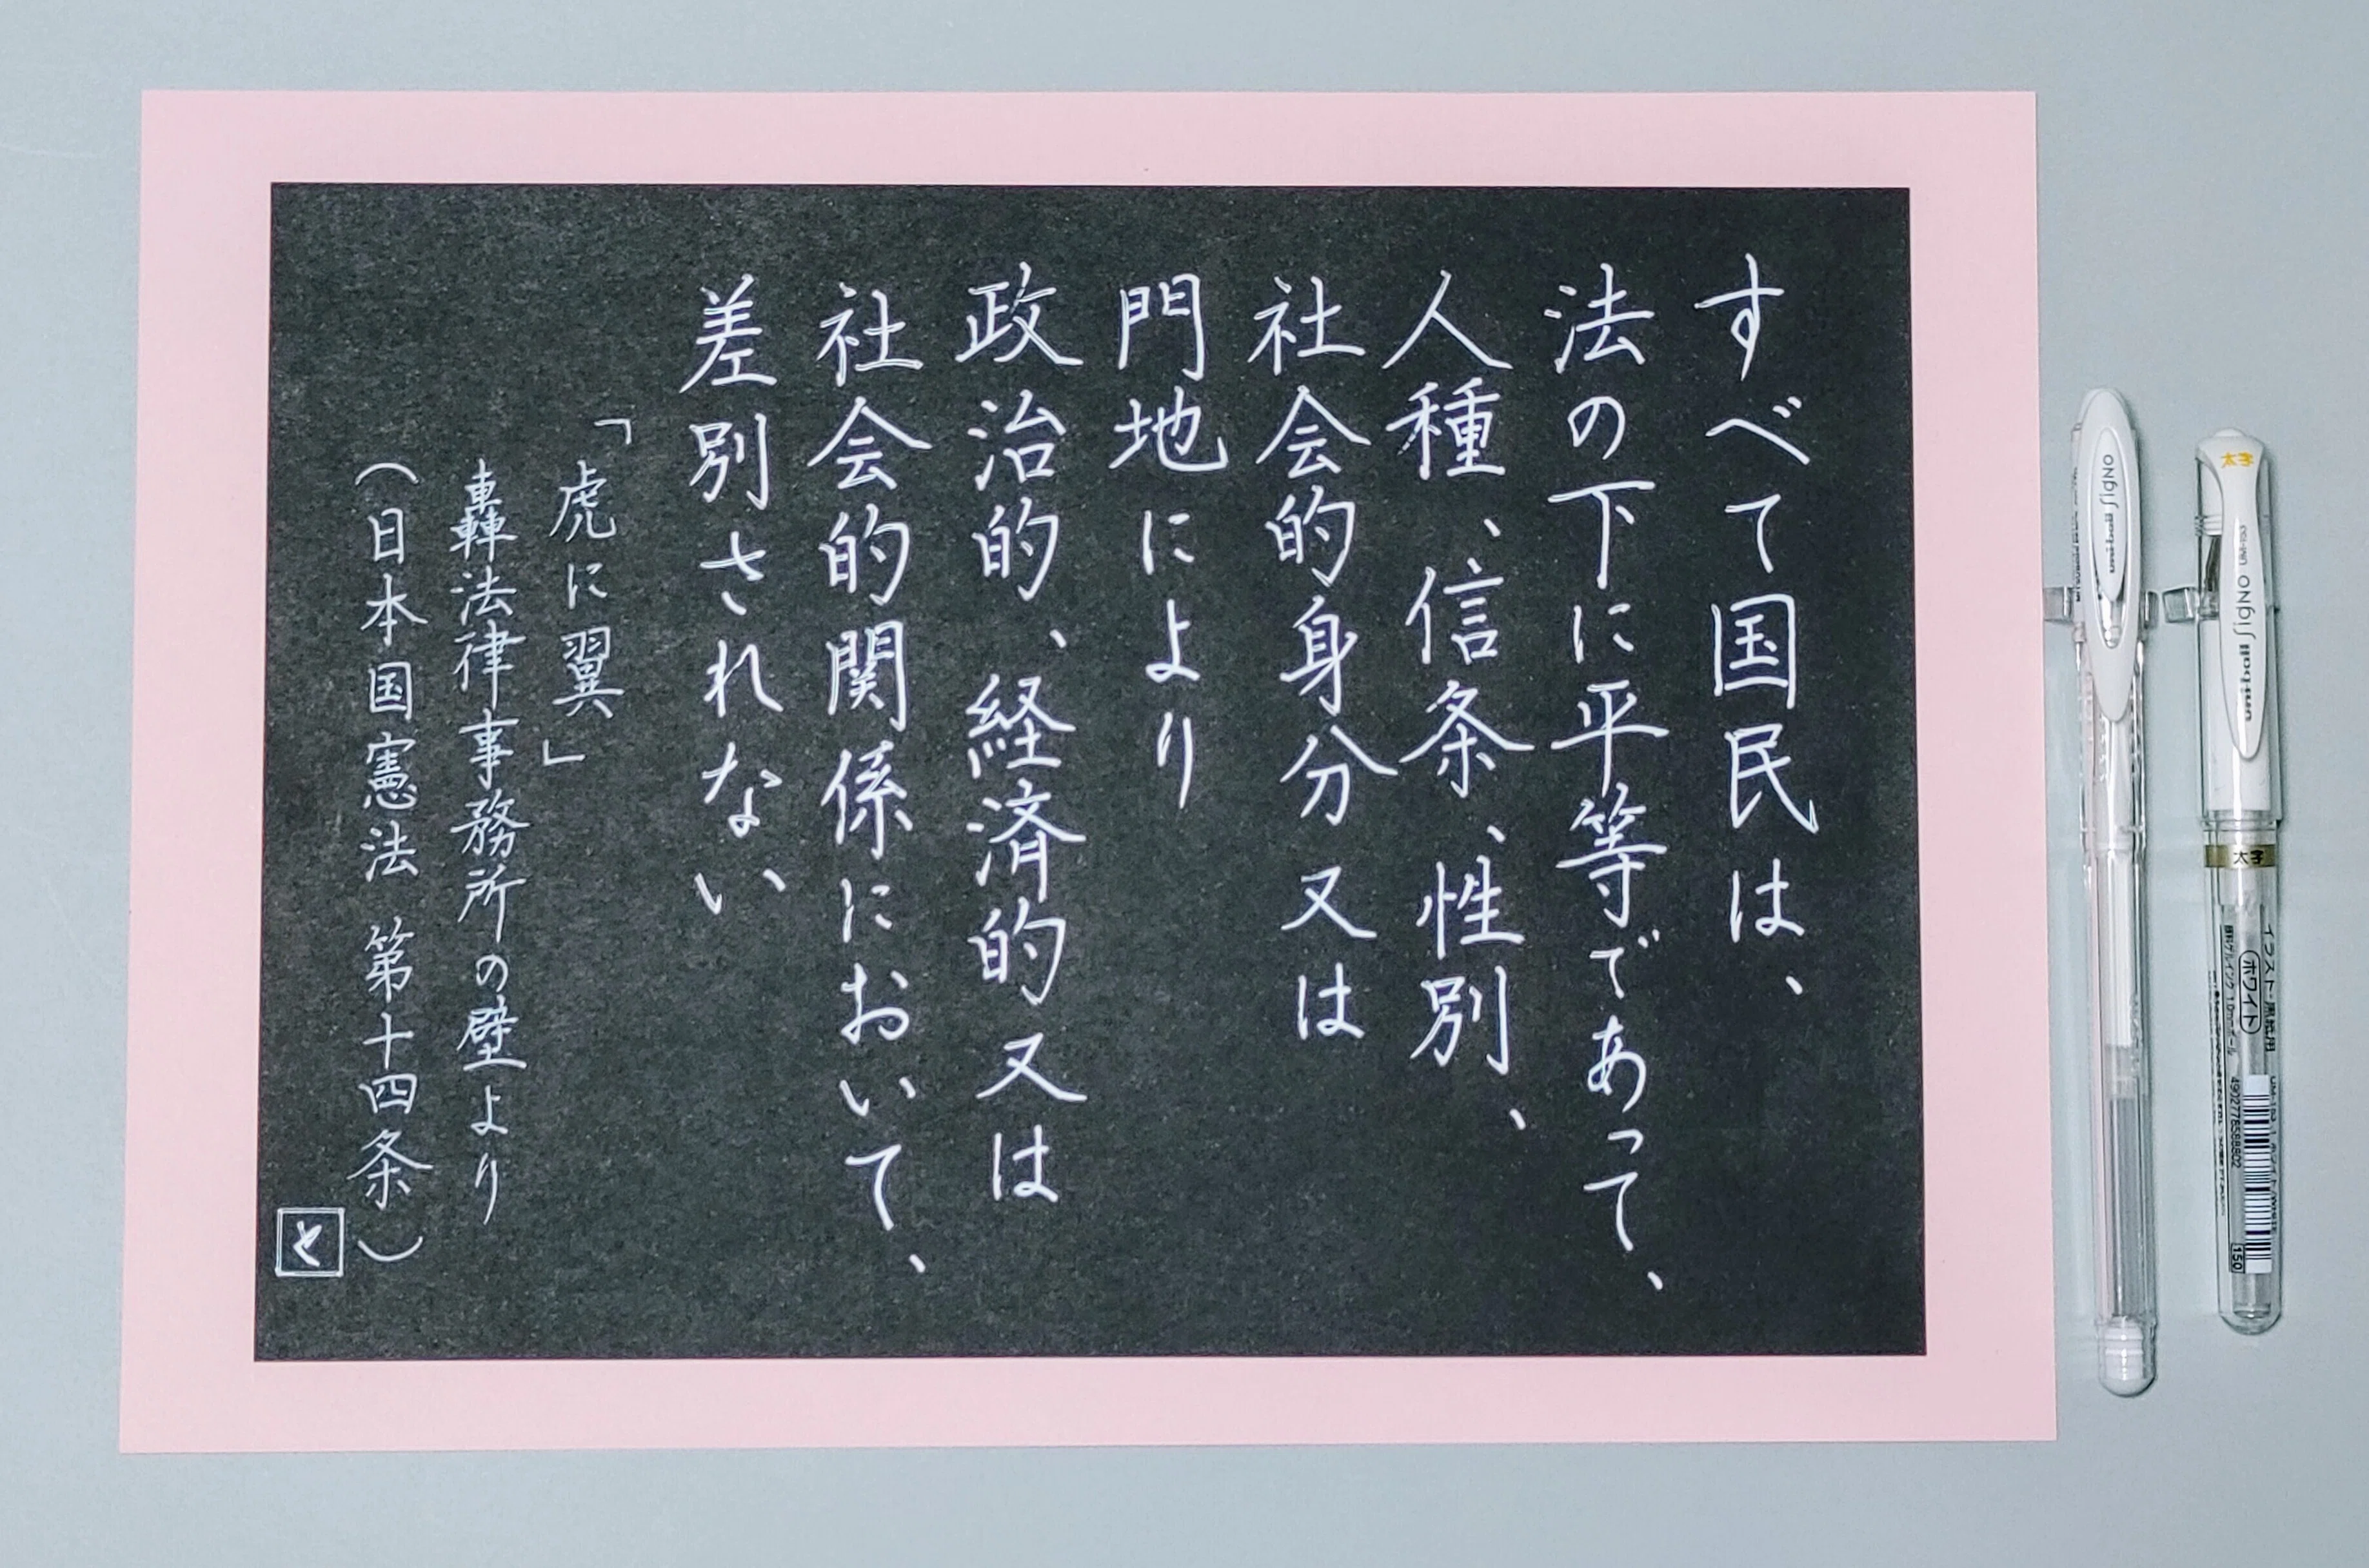 すべて国民は、
法の下に平等であって、
人種、信条、性別、
社会的身分又は
門地により
政治的、経済的又は
社会的関係において、
差別されない
「虎に翼」
轟法律事務所の壁より
(日本国憲法 第十四条)
と
uni-ball Signo
太字
uni-ball Signo
太字
イラスト・黒紙用
ホワイト
4902778588802
150